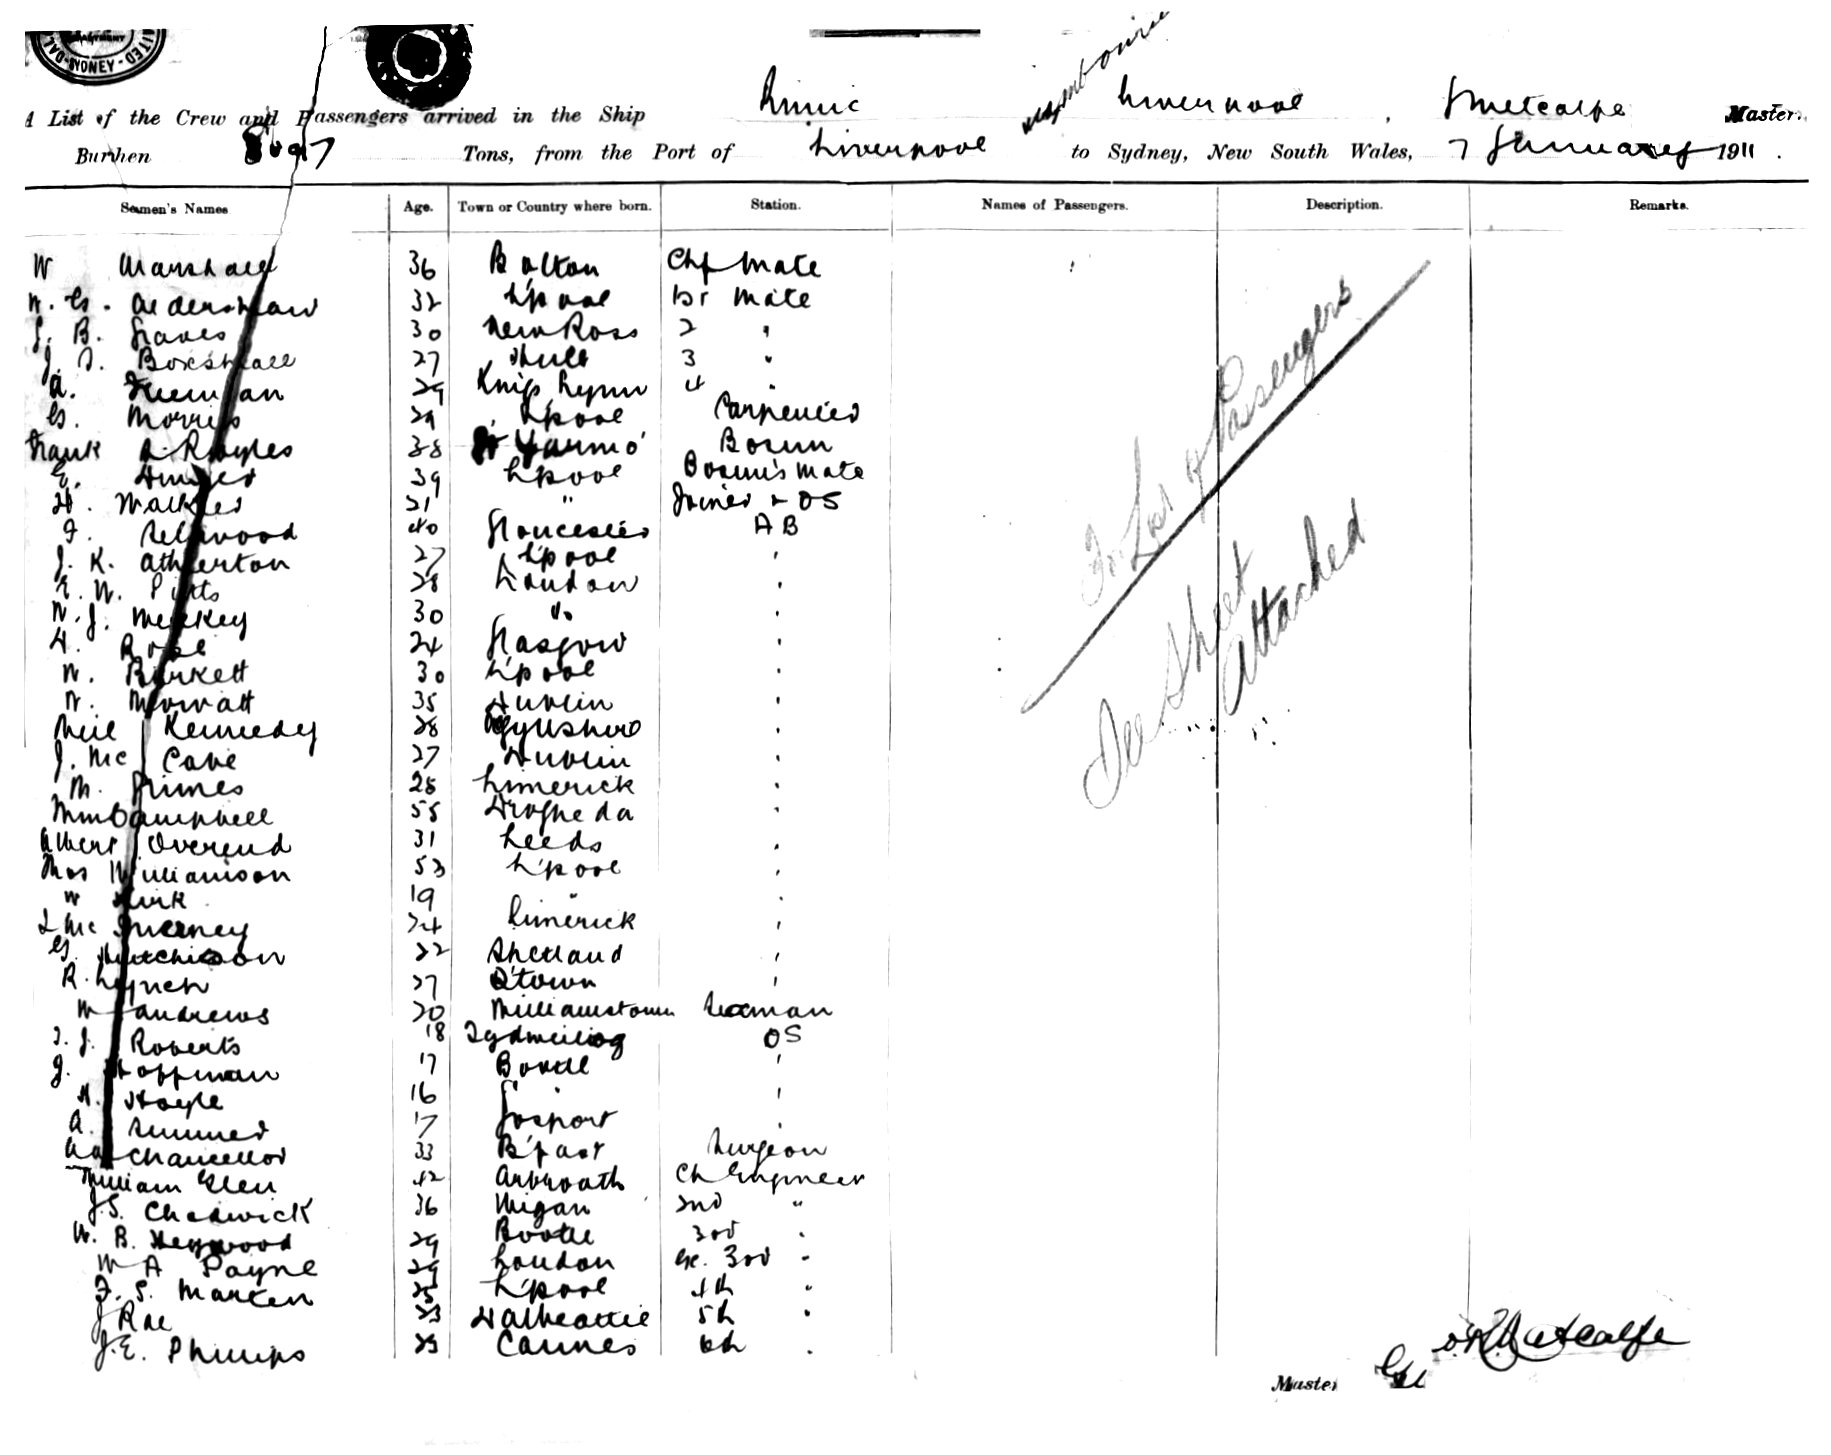 UNITED
SYDNEY
A List of the Crew and Passengers arrived in the Ship Runic Liverpool, Metcalfe Master.
Burthen Tons, from the Port of Liverpool to Sydney, New South Wales, 7 January 1911.
Seamen's Names Age. Town or Country where born. Station. Names of Passengers. Description. Remarks.
W Marshall 36 Bolton Chf Mate
W. G. Aldershaw 32 L'pool 1st Mate
J. B. Graves 30 New Ross 2 "
J. T. Boxshall 27 Hull 3 "
A. Freeman 29 Kings Lynn 4 "
G. Morris 29 L'pool Carpenter
Frank A. Royles 38 Gt Yarmo' Bosun
E. 39 L'pool Bosun's Mate
H. Walker 21 " Joiner & OS
F. Sellwood 40 Gloucester AB
J. K. Atherton 27 L'pool '
E. W. Pitts 28 London '
W. J. Merkey 30 " '
H. Rose 24 Glasgow '
W. Birkett 30 L'pool '
W. Mowatt 35 Dublin '
Neil Kennedy 28 Argyllshire '
J. McCabe 27 Dublin '
M. Grimes 28 Limerick '
Wm Campbell 55 Drogheda '
Albert Overend 31 Leeds '
Thos Williamson 53 L'pool '
W Kirk 19 " '
McInerney 24 Limerick '
G. Hutchison 22 Shetland '
R. Lynch 27 Q'town '
W Andrews 20 Williamstown Seaman
T. J. Roberts 18 OS
J. Hoffman 17 Bootle '
H. Hoyle 16 " '
A. Sumner 17 Gosport '
Chancellor 33 B'fast Surgeon
William Glen 42 Arbroath Ch Engineer
J. S. Chadwick 36 Wigan 2nd "
W. B. Heywood 29 Bootle 3rd "
W A Payne 29 London Ex. 3rd "
F. S. Marten 25 L'pool 4th "
J Rae 23 Dalbeattie 5th "
J. E. Phillips 23 Cannes 6th "
For List of Passengers
See Sheet
Attached
Metcalfe
Master